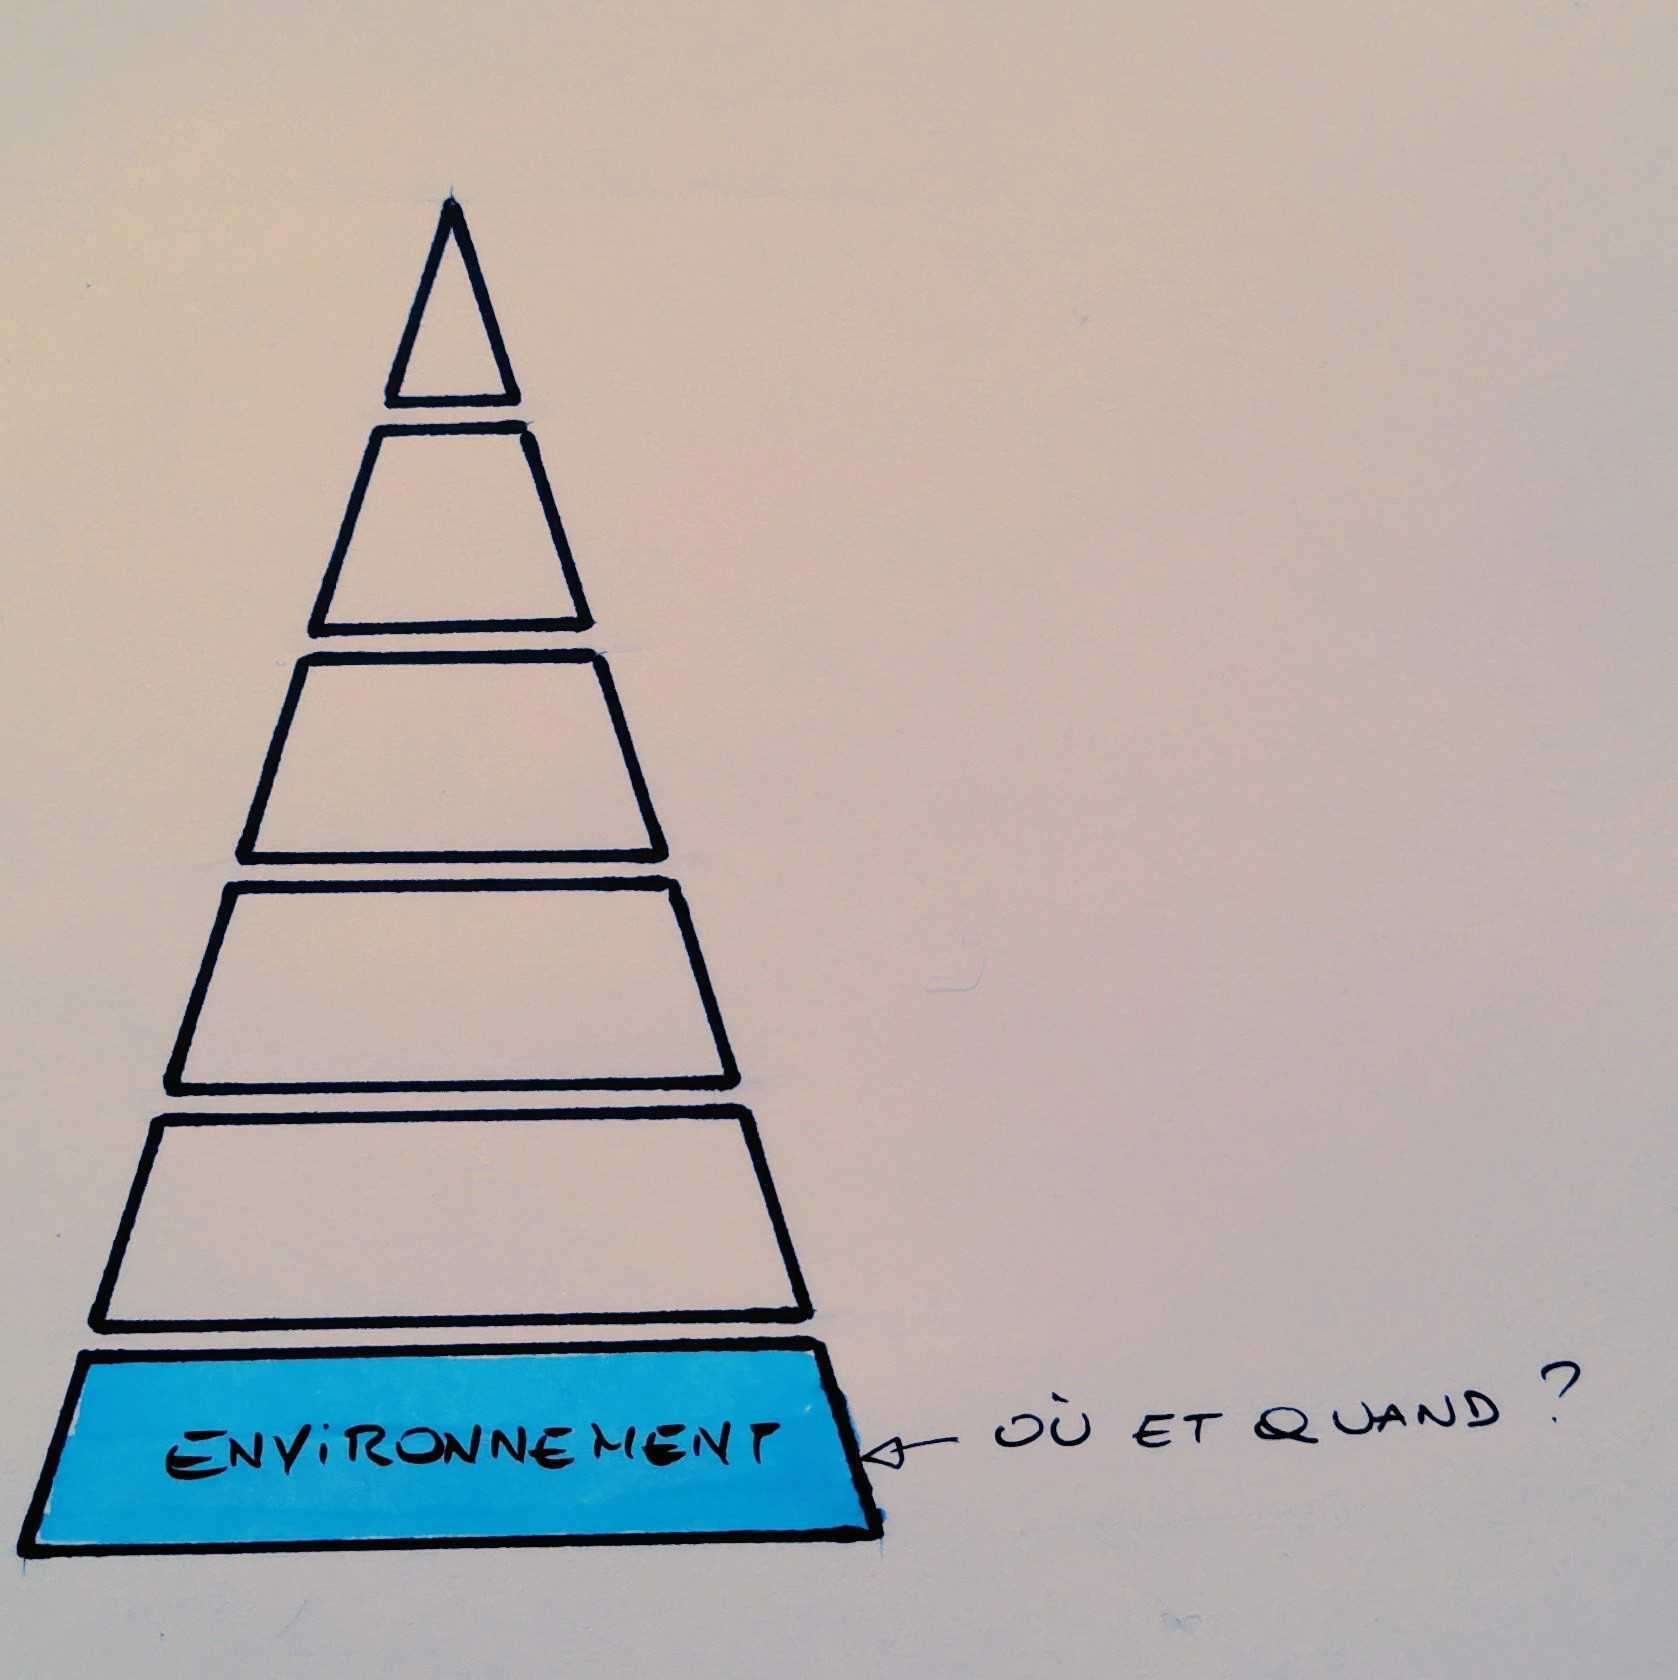 ENVIRONNEMENT
OÙ ET QUAND ?